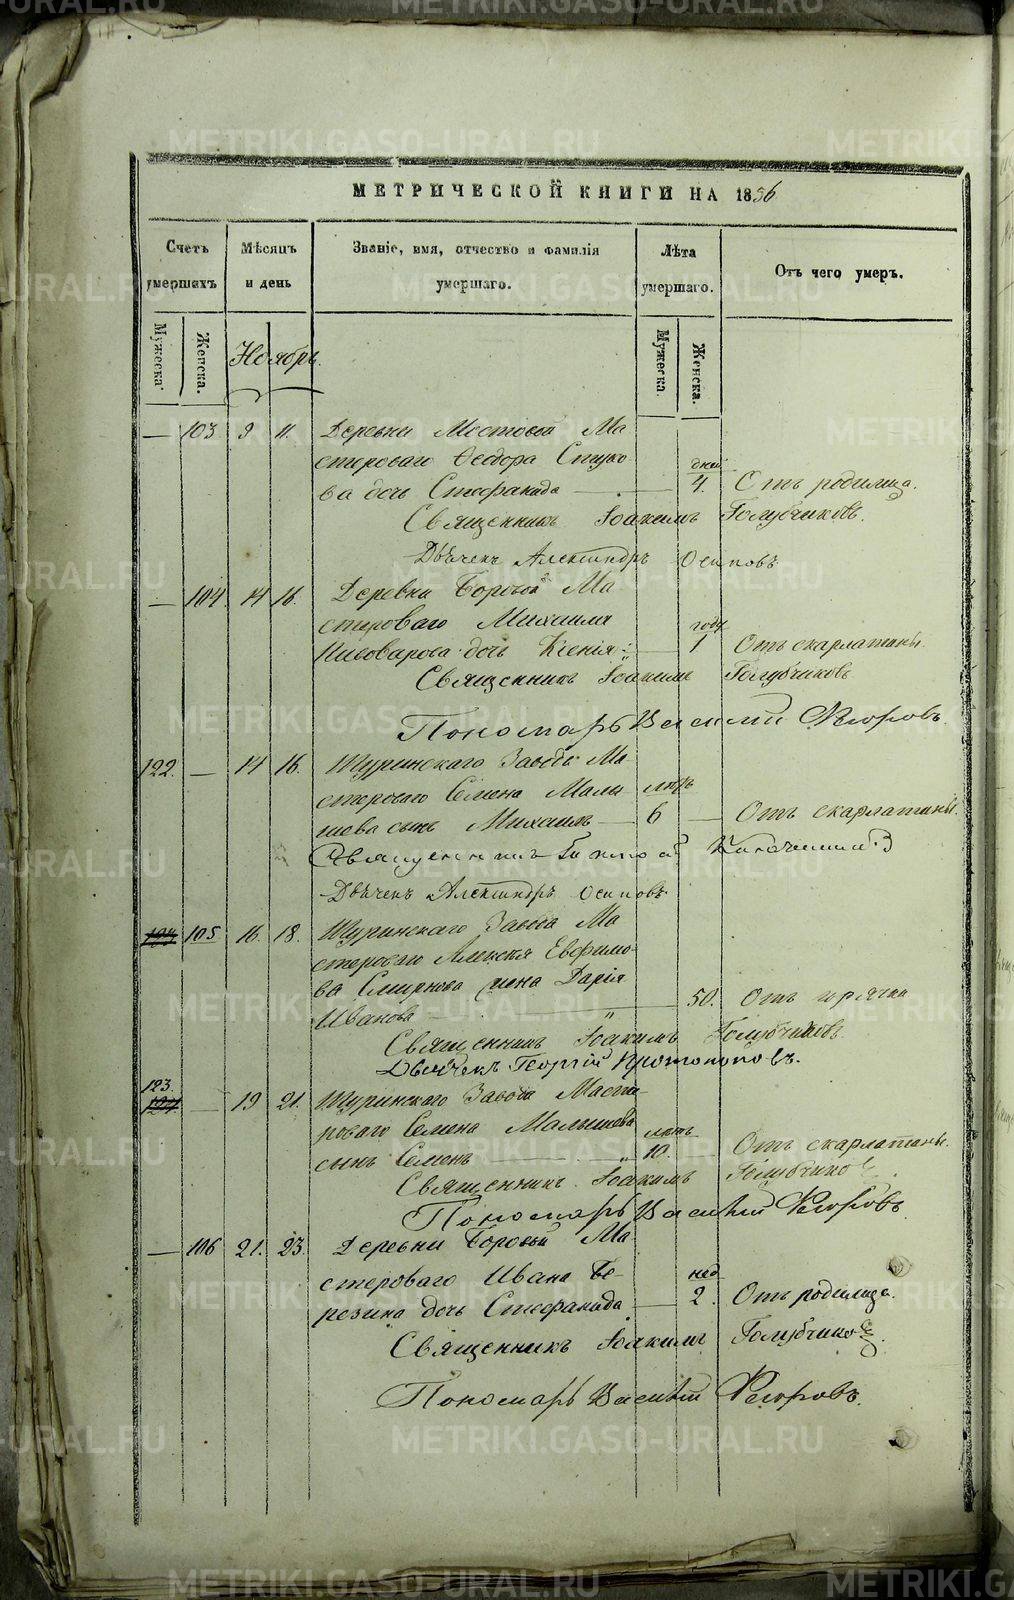 МЕТРИЧЕСКОЙ КНИГИ НА 1856
Счетъ умершихъ
Мѣсяцъ и день
Званіе, имя, отчество и фамилія умершаго.
Лѣта умершаго.
Отъ чего умеръ.
Мужеска.
Женска.
Мужеска.
Женска.
Ноябрь.
— 103 9 11. Деревни Мостовой Ма
стероваго Ѳеодора Стуко
ва дочь Стефанида — дней 4. Отъ родимца.
Священникъ Іоакимъ Голубчиковъ.
Дьячекъ Александръ Осиповъ
— 104. 14 16. Деревни Боровой Ма
стероваго Михаила
Пивоварова дочь Ксенія — годъ 1 Отъ скарлатины.
Священникъ Іоакимъ Голубчиковъ
Пономарь Василій Флоровъ.
122. — 14 16. Туринскаго Завода Ма
стероваго Семена Малы
шева сынъ Михаилъ — лѣтъ 6 — Отъ скарлатины.
Священникъ
Дьячекъ Александръ Осиповъ
105 16. 18. Туринскаго Завода Ма
стероваго Алексѣя Евфимо
ва Смирнова жена Дарія
Иванова — 50. Отъ горячки
Священникъ Іоакимъ Голубчиковъ.
Дьячекъ Георгій Протопоповъ.
123. — 19 21. Туринскаго Завода Масте
роваго Семена Малышева
сынъ Семенъ — лѣтъ 10. Отъ скарлатины.
Священникъ Іоакимъ Голубчиковъ.
Пономарь Василій Флоровъ
— 106 21. 23. Деревни Боровой Ма
стероваго Ивана Бе
резина дочь Стефанида — нед 2. Отъ родимца.
Священникъ Іоакимъ Голубчиковъ.
Пономарь Василій Флоровъ.
METRIKI.GASO-URAL.RU